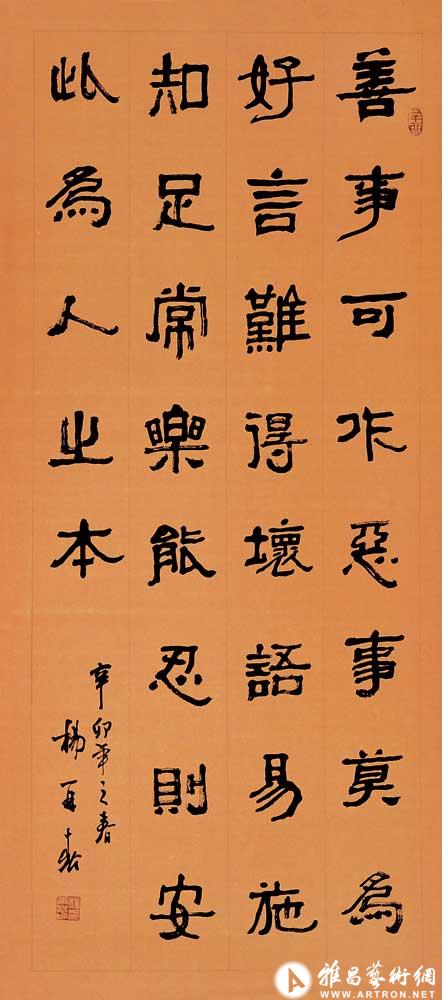 善事可作惡事莫為
好言難得壞語易施
知足常樂能忍則安
此為人之本
辛卯年之春
楊再春
雅昌藝術網
WWW.ARTRON.NET